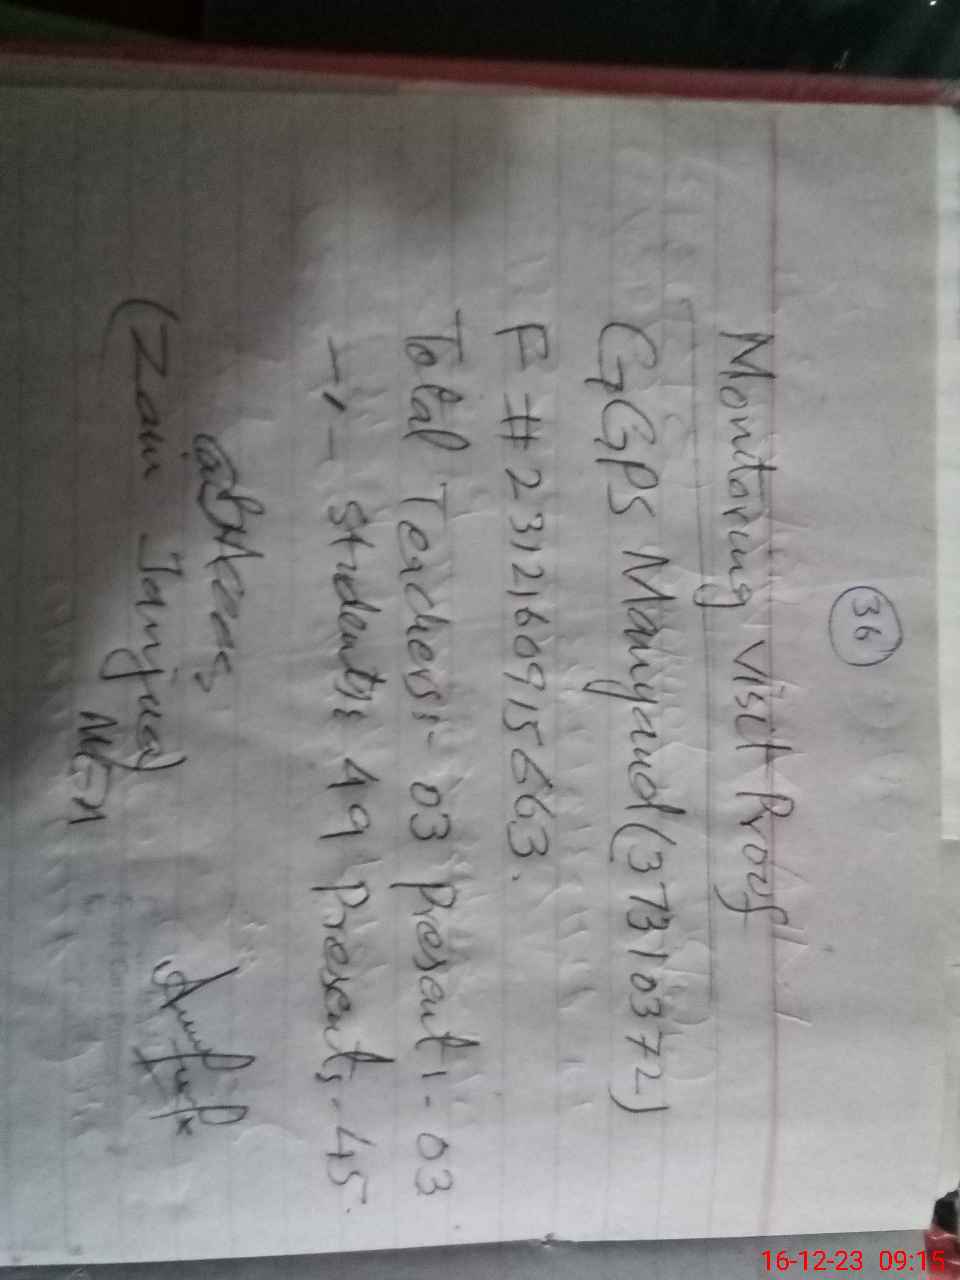 36
Monitoring Visit Proof
GGPS Manyand (37310372)
F # 2312160915663.
Total Teachers:- 03 Present:- 03
-,- Students: 49 Present:- 45.
(Zain Janjua)
16-12-23 09:15